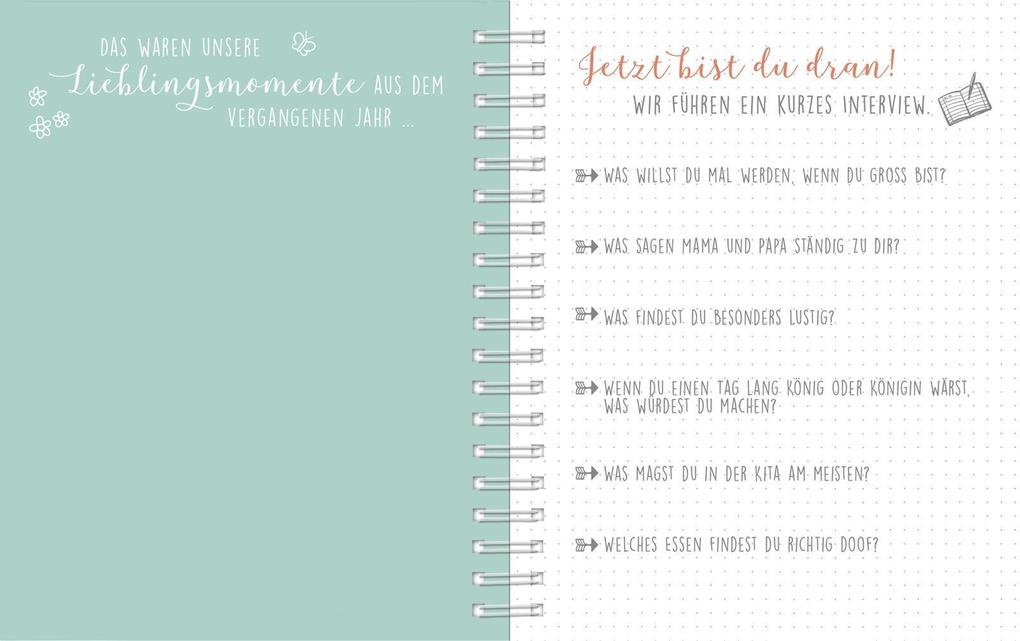 DAS WAREN UNSERE
Lieblingsmomente AUS DEM
VERGANGENEN JAHR ...
Jetzt bist du dran!
WIR FÜHREN EIN KURZES INTERVIEW.
WAS WILLST DU MAL WERDEN, WENN DU GROSS BIST?
WAS SAGEN MAMA UND PAPA STÄNDIG ZU DIR?
WAS FINDEST DU BESONDERS LUSTIG?
WENN DU EINEN TAG LANG KÖNIG ODER KÖNIGIN WÄRST,
WAS WÜRDEST DU MACHEN?
WAS MAGST DU IN DER KITA AM MEISTEN?
WELCHES ESSEN FINDEST DU RICHTIG DOOF?